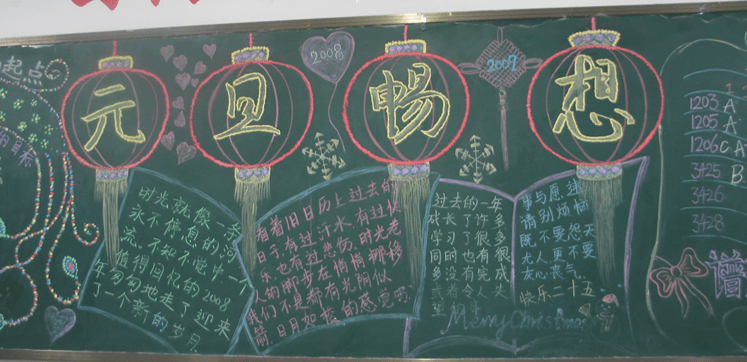 元旦畅想
2008
2009
起点
时光就像一条
永不停息的河
流,不知不觉中,一个
值得回忆的2008
年匆匆地走了迎来
了一个新的岁月
看着旧日历上过去的
日子,有过汗水,有过快
乐,也有过悲伤,时光老
人的脚步在悄悄挪移
我们不是都有光阴似
箭,日月如梭的感觉吗
过去的一年
成长了许多
学习了很多
同时也有很
多没有完成
或者令人失
望
事与愿违
请别烦恼
既不要怨天
尤人更不要
灰心丧气。
快乐二十五
Merry Christmas
1203 A
1205 A
1206 C A
3425 B
3426
3428